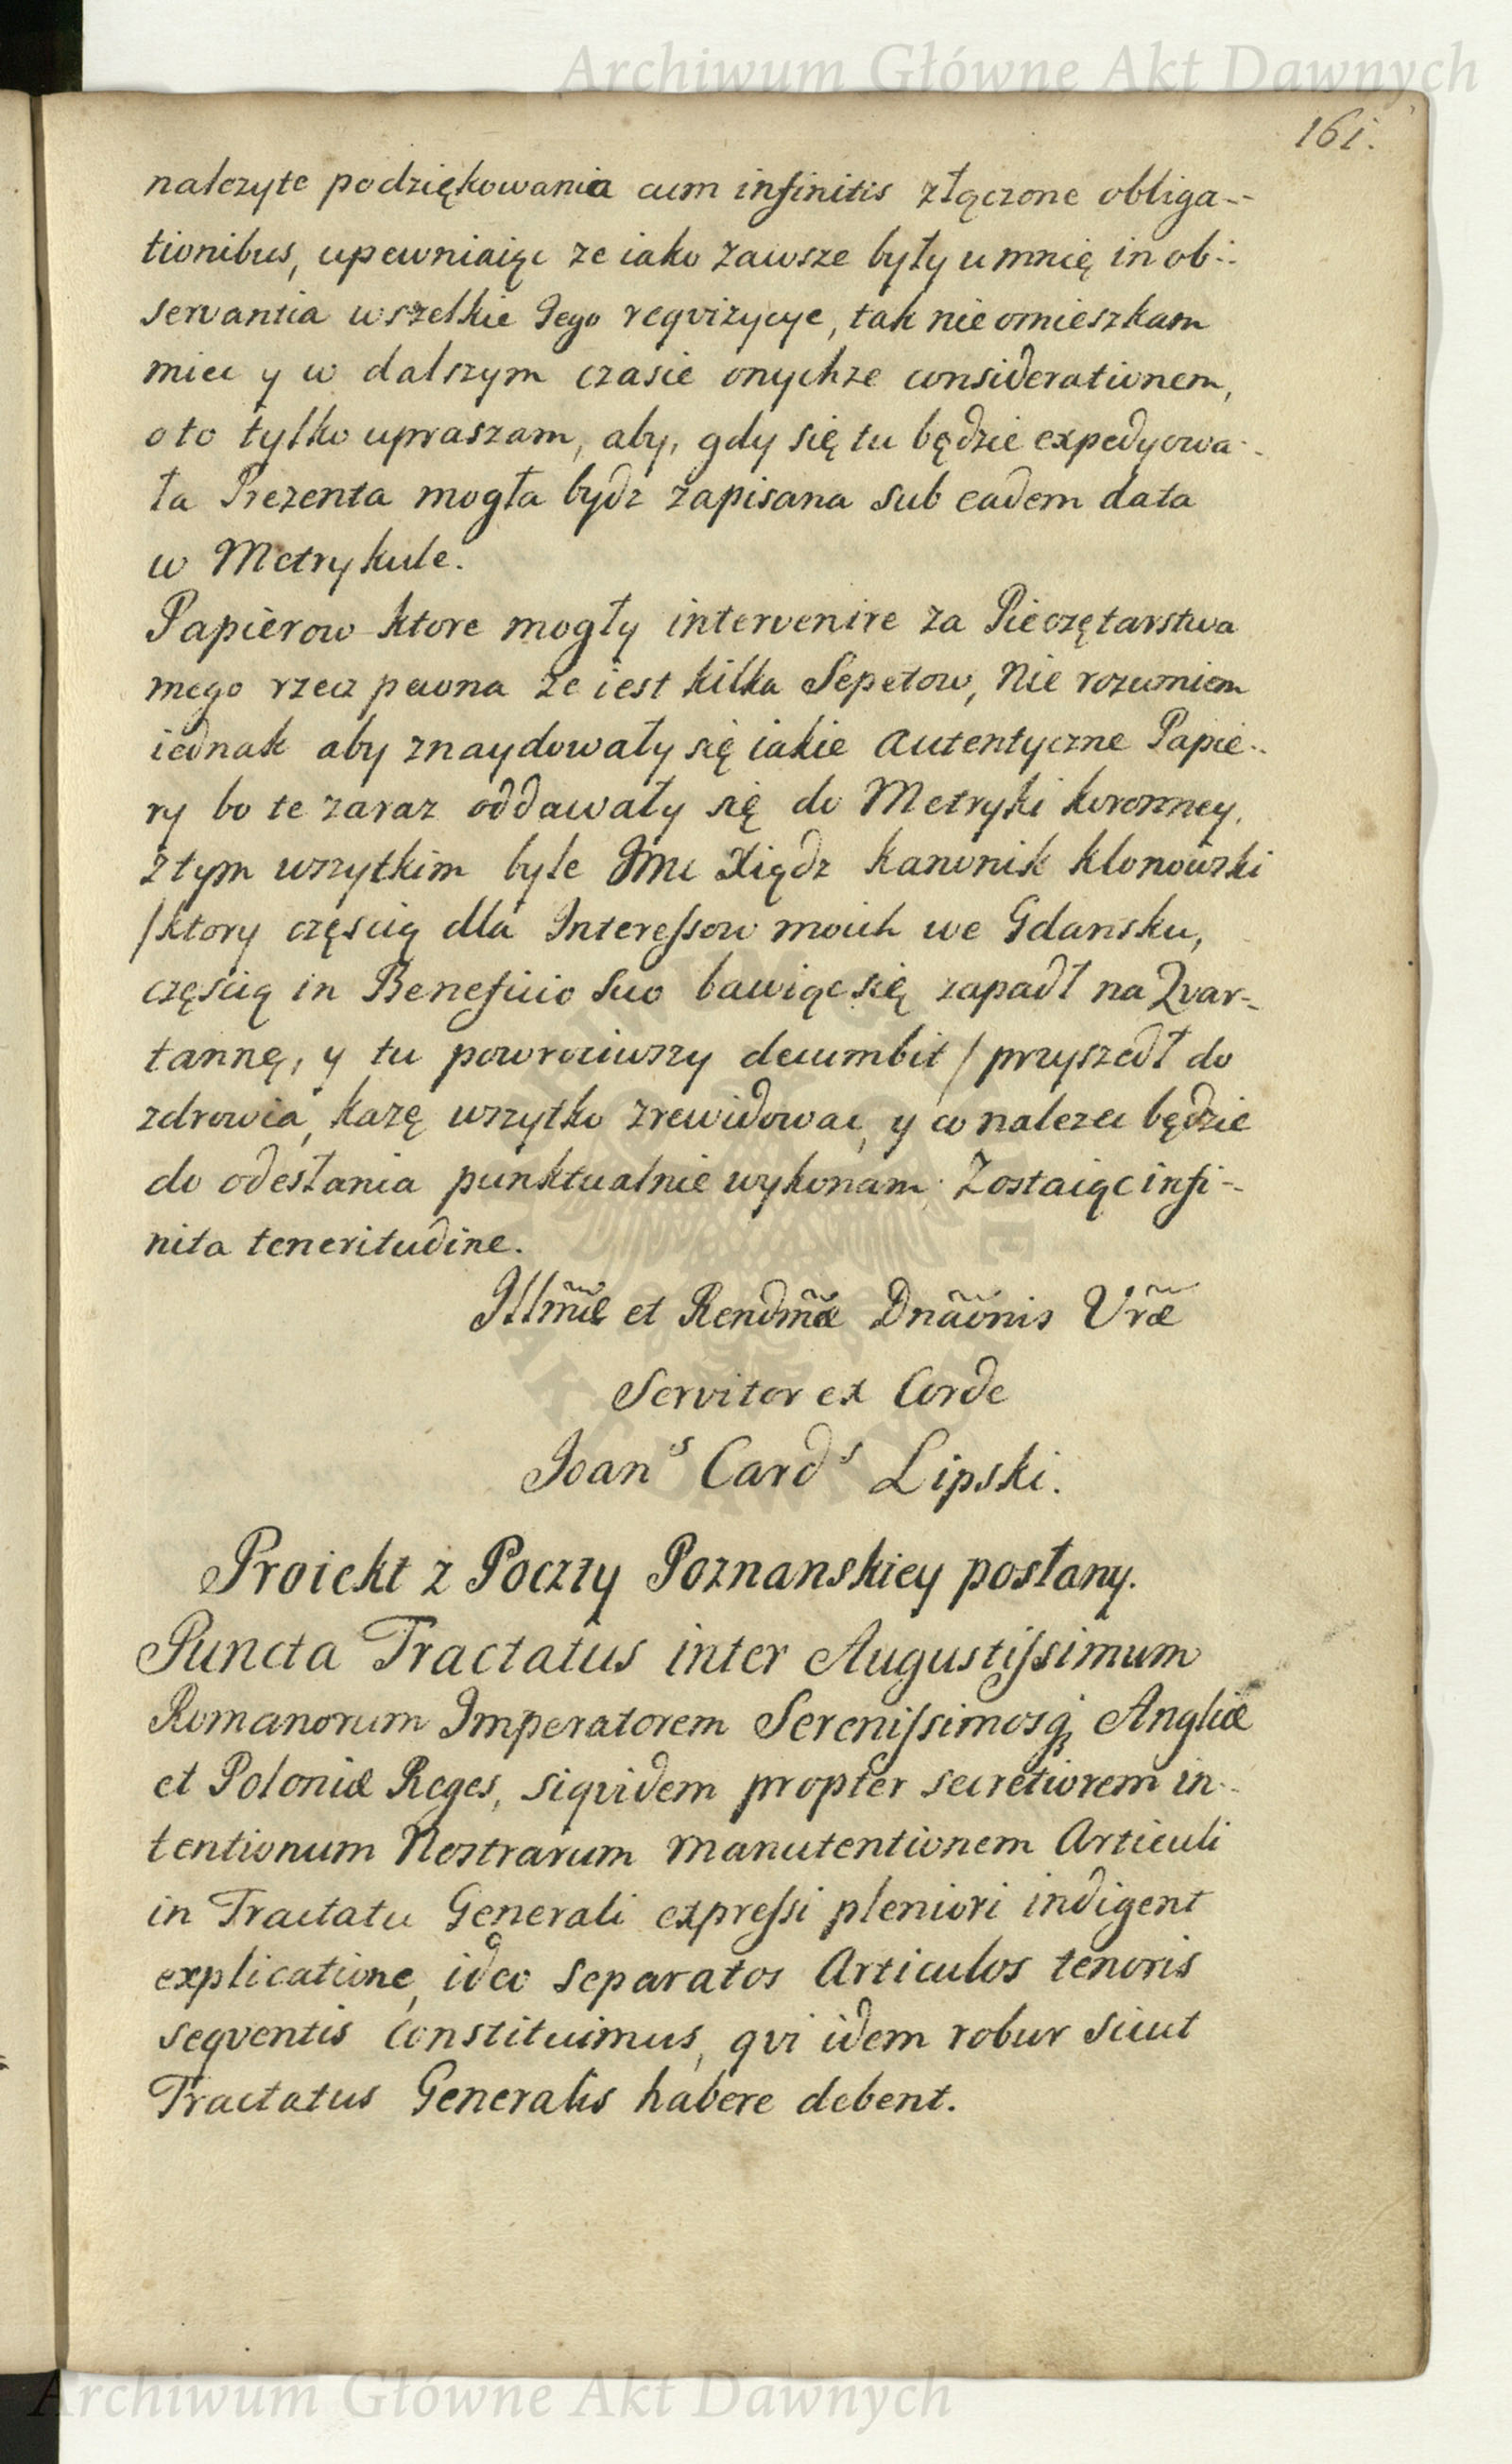 Archiwum Główne Akt Dawnych
161.
nalezyte podziękowania cum infinitis złączone obliga--
tionibus, upewniaiąc ze iako zawsze były u mnię in ob-:
servantia wszelkie Jego reqvizycye, tak nie omieszkam
miec y w dalszym czasie onychze considerationem,
o to tylko upraszam, aby, gdy się tu będzie expedyowa-
ła Prezenta mogła bydz zapisana sub eadem data
w Metrykule.
Papierow ktore mogły intervenire za Pieczętarstwa
mego rzecz pewna ze iest kilka Sepetow, Nie rozumiem
iednak aby znaydowały się iakie Autentyczne Papie-
ry bo te zaraz oddawały się do Metryki koronney.
z tym wszytkim byle Jmc Xiądz kanonik klonowski
/ktory częscią dla Interessow moich we Gdansku,
częscią in Beneficio suo bawiąc się zapadł na Qvar-
tannę, y tu powrociwszy decumbit/ przyszedł do
zdrowia, kazę wszytko zrewidowac, y co nalezec będzie
do odesłania punktualnie wykonam. Zostaiąc infi-
nita teneritudine.
Illm̃æ et Rendm̃æ Dnãonis Vr̃æ
Servitor ex Corde
Joanˢ Cardˢ Lipski.
Proiekt z Poczty Poznanskiey posłany.
Puncta Tractatus inter Augustissimum
Romanorum Imperatorem Serenissimosq́ Angliæ
et Poloniæ Reges, siqvidem propter secretiorem in-
tentionum Nostrarum manutentionem Articuli
in Tractatu Generali expressi pleniori indigent
explicatione, ideo separatos Articulos tenoris
seqventis constituimus, qvi idem robur sicut
Tractatus Generalis habere debent.
Archiwum Główne Akt Dawnych